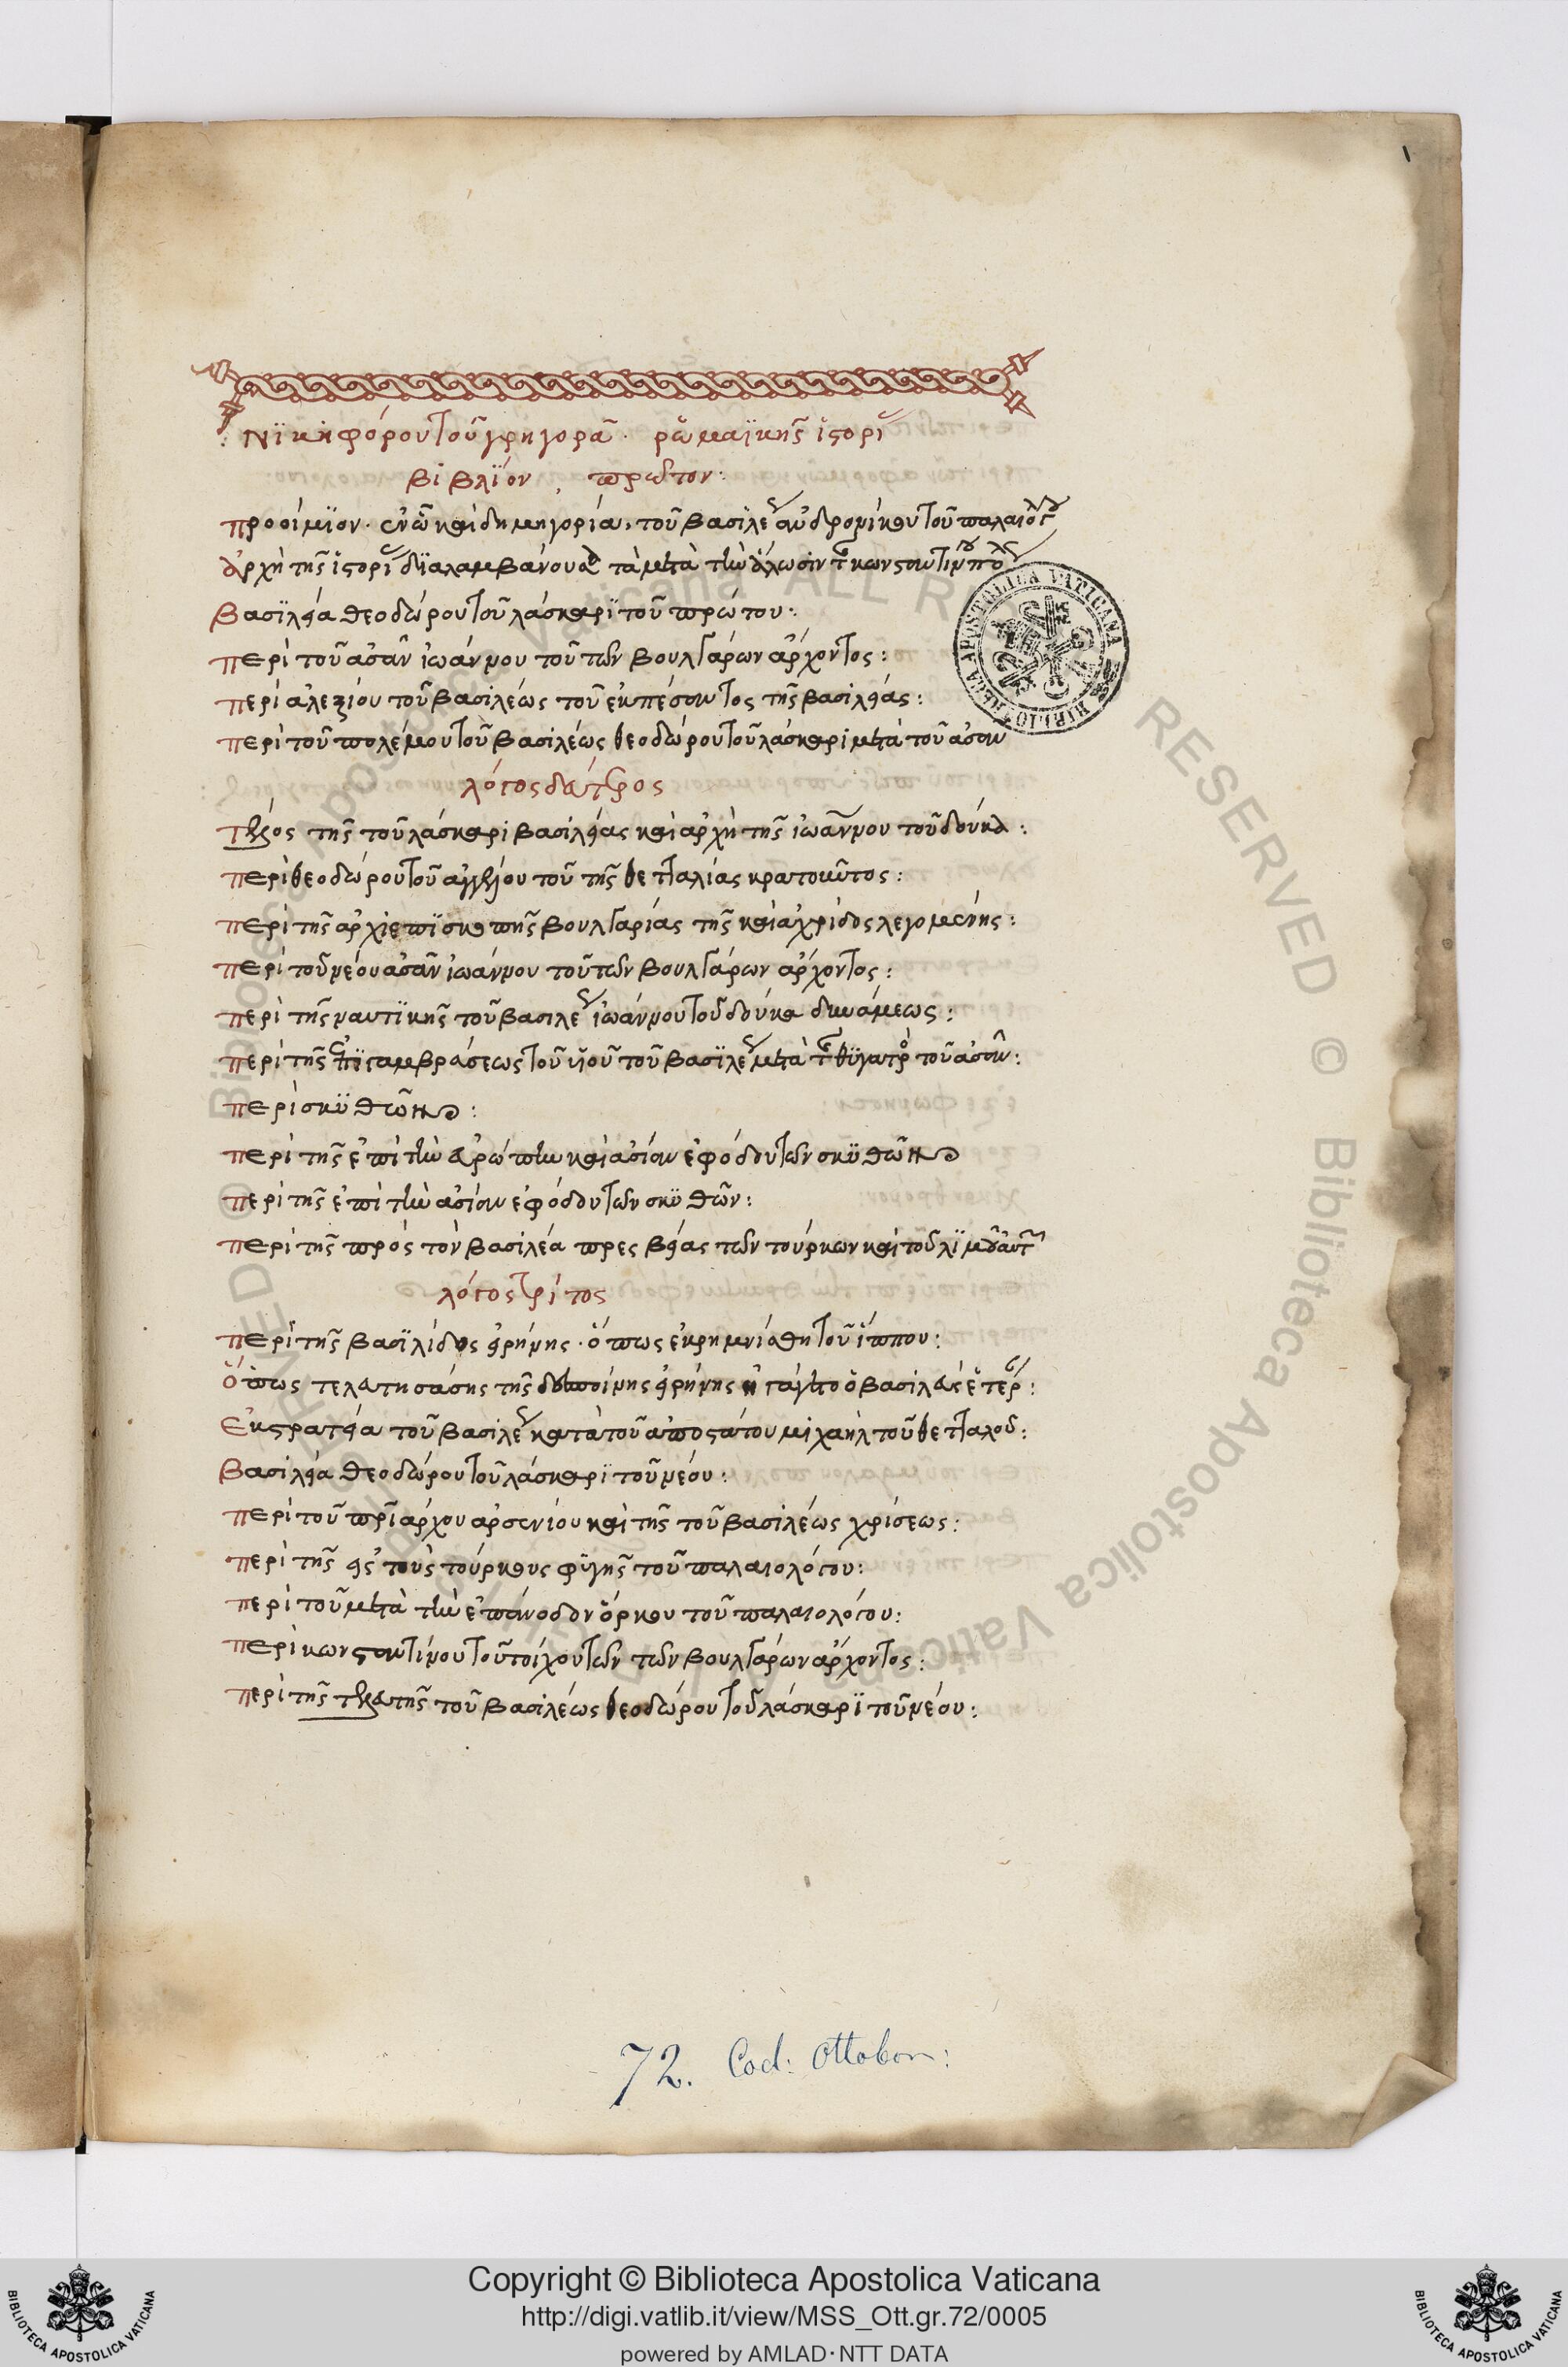 Νϊκηφόρου τοῦ γρηγορᾶ· ῥωμαϊκῆς ἱστορί
βιβλΐον πρῶτον:
προοίμϊον· ἐν ὧ καὶ δημηγορία, τοῦ βασιλέως ἀνδρονίκου τοῦ παλαιολόγου
ἀρχὴ τῆς ἱστορίας διαλαμβάνουσα τὰ μετὰ τὴν ἅλωσιν τῆς κωνσταντίνου πόλεως
Βασϊλεία θεοδώρου τοῦ λάσκαρϊ τοῦ πρώτου:
περὶ τοῦ ἀσὰν ἰωάννου τοῦ τῶν βουλγάρων ἄρχοντος:
περὶ ἀλεξίου τοῦ βασιλέως τοῦ ἐκπέσοντος τῆς βασιλείας:
περὶ τοῦ πολέμου τοῦ βασιλέως θεοδώρου τοῦ λάσκαρι μετὰ τοῦ ἀσὰν
λόγος δεύτερος
τέλος τῆς τοῦ λάσκαρι βασιλείας καὶ ἀρχὴ τῆς ἰωάννου τοῦ δούκα:
περὶ θεοδώρου τοῦ ἀγγέλου τοῦ τῆς θετταλίας κρατοῦντος:
περὶ τῆς ἀρχιεπϊσκοπῆς βουλγαρίας τῆς καὶ ἀχρίδος λεγομένης:
περὶ τοῦ νέου ἀσὰν ἰωάννου τοῦ τῶν βουλγάρων ἄρχοντος:
περὶ τῆς ναυτϊκῆς τοῦ βασιλέως ἰωάννου τοῦ δούκα δυνάμεως:
περὶ τῆς ἐπϊγαμβρεύσεως τοῦ υἱοῦ τοῦ βασϊλέως μετὰ τῆς θϋγατρὸς τοῦ ἀσὰν:
περὶ σκϋθῶν:
περὶ τῆς ἐπὶ τὴν εὐρώπην καὶ ἀσίαν ἐφόδου τῶν σκϋθῶν
περὶ τῆς ἐπὶ τὴν ἀσίαν ἐφόδου τῶν σκϋθῶν:
περὶ τῆς πρὸς τὸν βασιλέα πρεσβείας τῶν τούρκων καὶ τοῦ λϊμοῦ αὐτῶν
λόγος τρίτος
περὶ τῆς βασϊλίδος εἰρήνης· ὅπως ἐκρημνίσθη τοῦ ἵππου:
ὅπως τελευτησάσης τῆς δεσποίνης εἰρήνης ἠγάγετο ὁ βασιλεὺς ἑτέραν:
Ἐκστρατεία τοῦ βασιλέως κατὰ τοῦ ἀποστάτου μιχαὴλ τοῦ θετταλοῦ:
Βασιλεία θεοδώρου τοῦ λάσκαρϊ τοῦ νέου:
περὶ τοῦ πατριάρχου ἀρσενίου καὶ τῆς τοῦ βασιλέως χρίσεως:
περὶ τῆς εἰς τοὺς τούρκους φϋγῆς τοῦ παλαιολόγου:
περὶ τοῦ μετὰ τὴν ἐπάνοδον ὅρκου τοῦ παλαιολόγου:
περὶ κωνσταντίνου τοῦ τοίχου τῶν τῶν βουλγάρων ἄρχοντος:
περὶ τῆς τελευτῆς τοῦ βασιλέως θεοδώρου τοῦ λάσκαρϊ τοῦ νέου:
72. Cod: Ottobon:
Copyright © Biblioteca Apostolica Vaticana
http://digi.vatlib.it/view/MSS_Ott.gr.72/0005
powered by AMLAD·NTT DATA